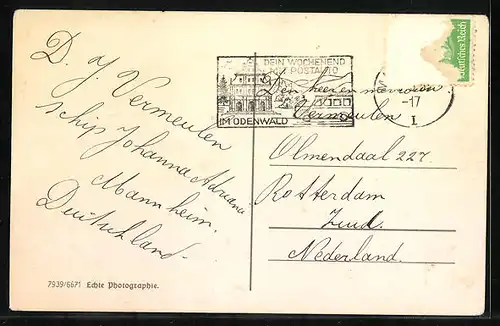 D. J. Vermeulen
schip Johanna Adriana
Mannheim.
Duitschland.
7939/6671 Echte Photographie.
DEIN WOCHENEND
MIT POSTAUTO
IM ODENWALD
-17
I
Deutsches Reich
Den heer en mevrouw
Vermeulen
Olmendaal 227.
Rotterdam
Zuid.
Nederland.